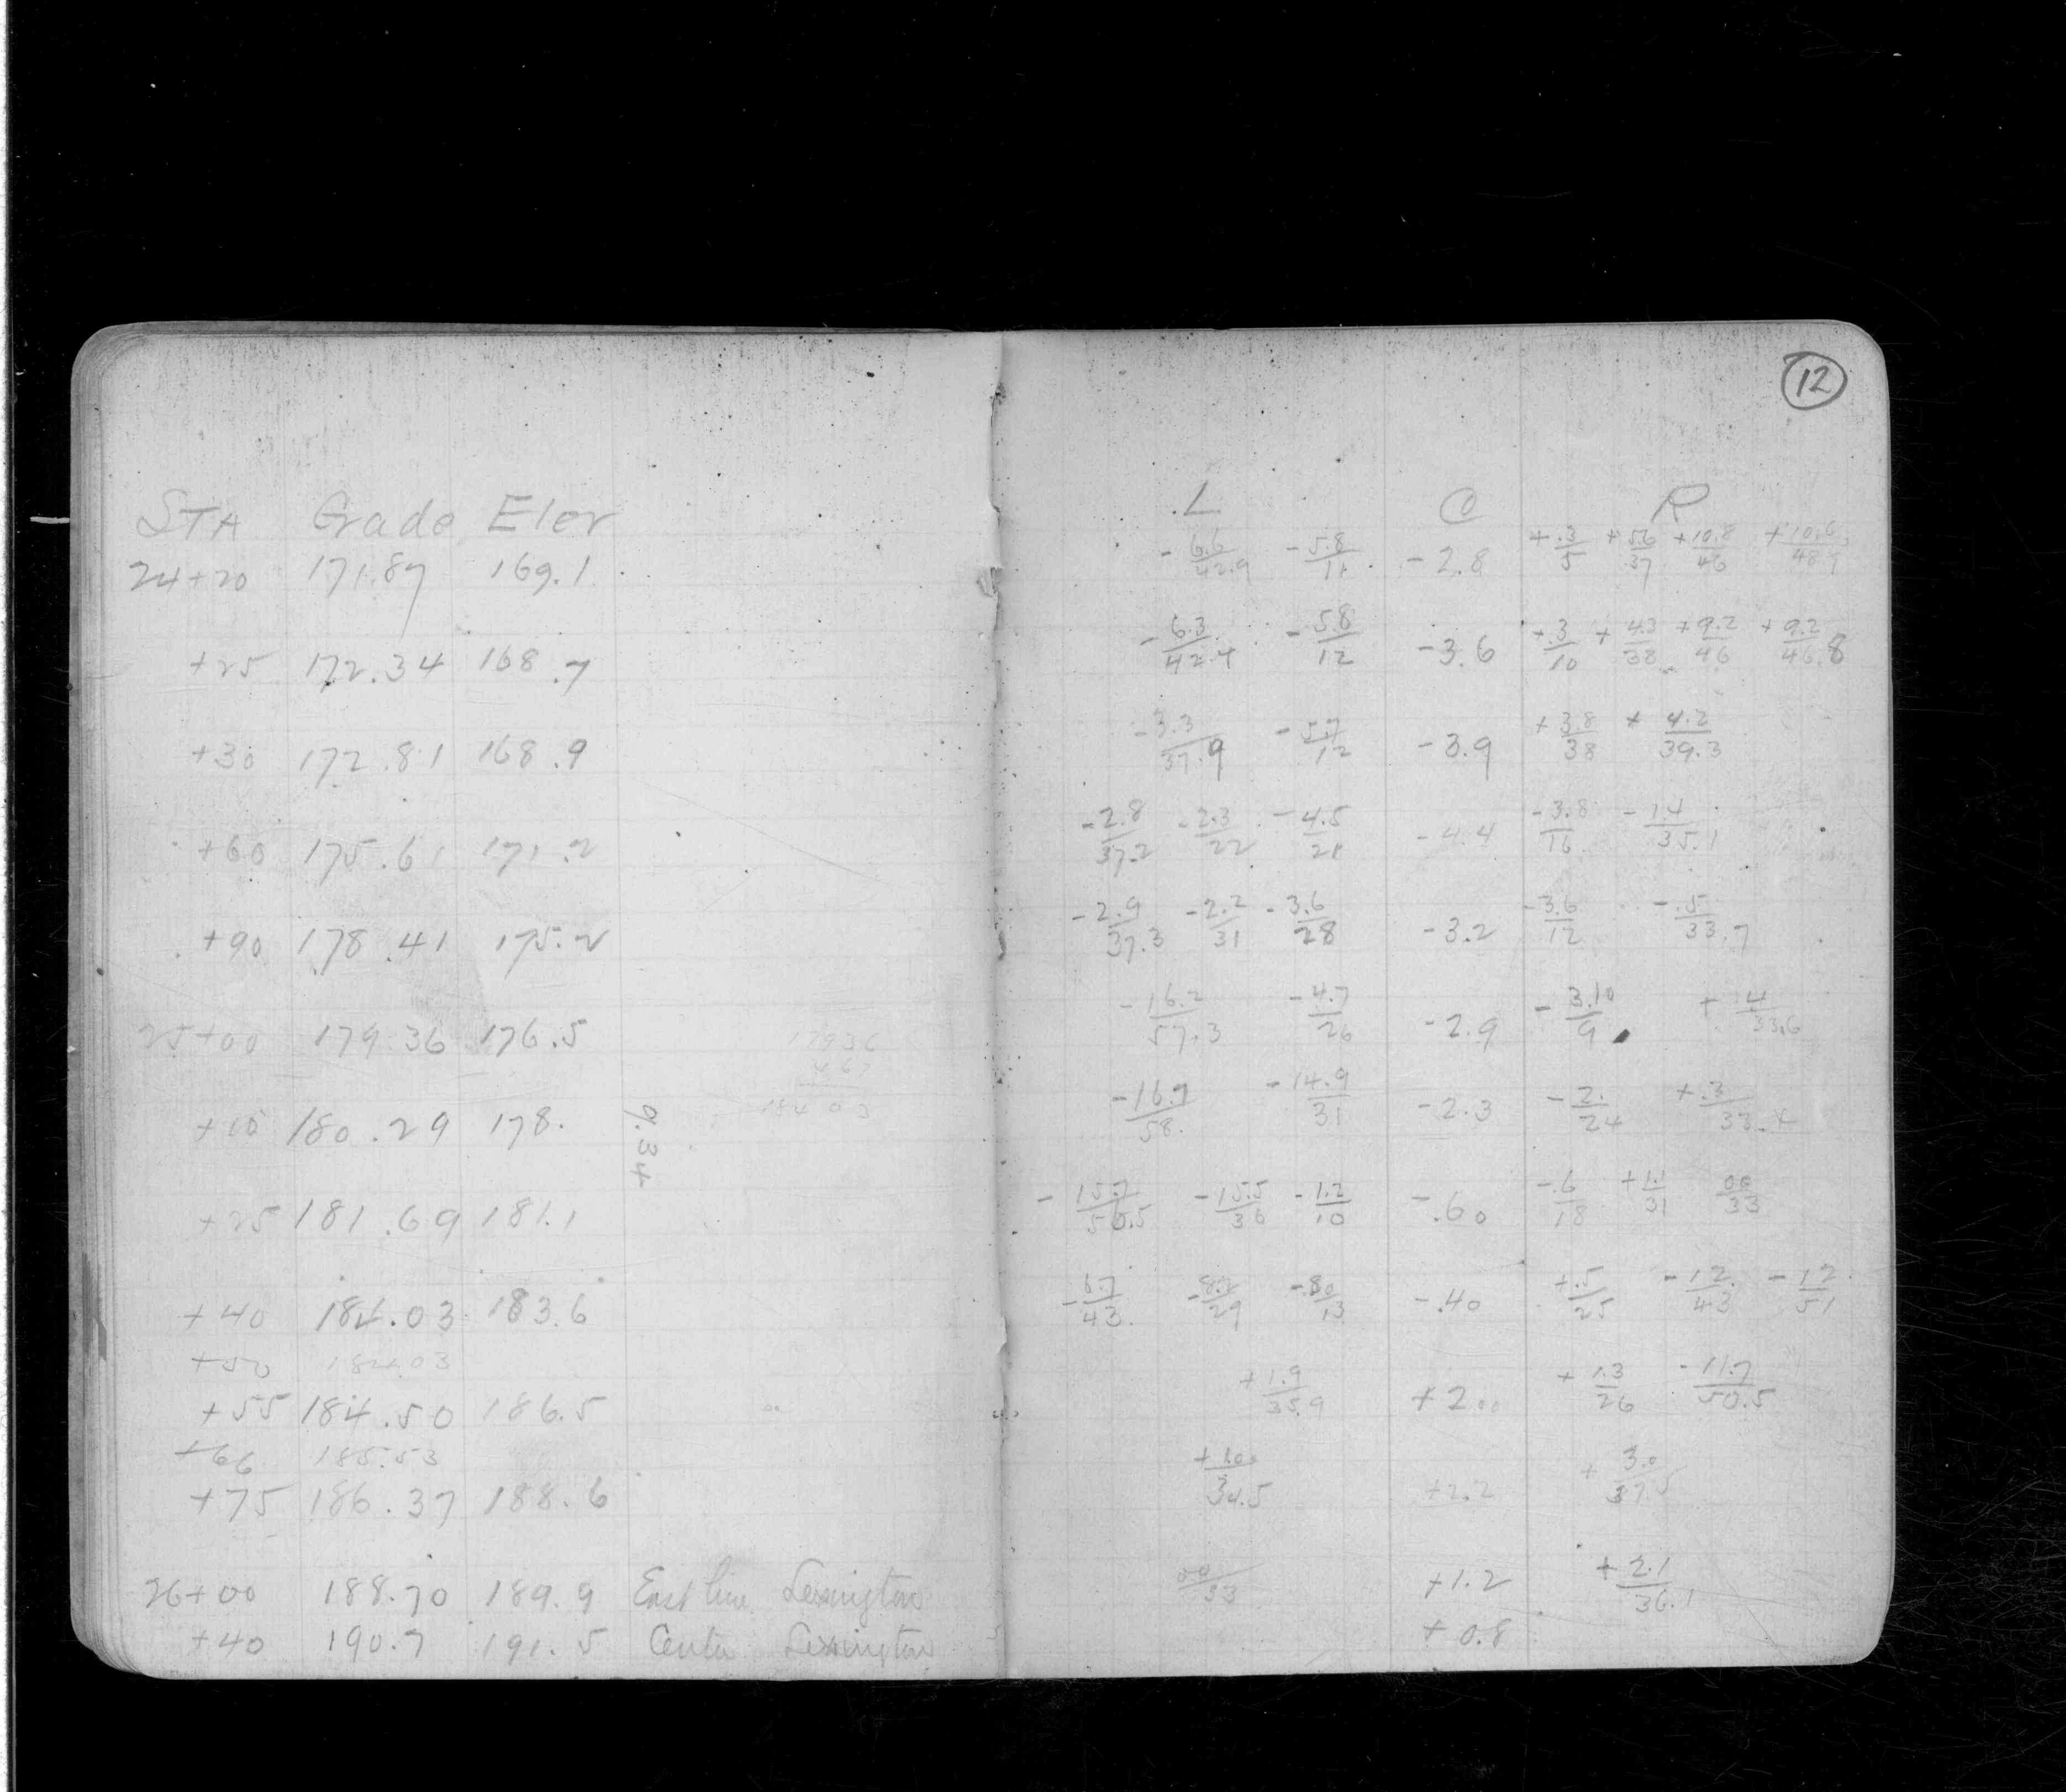 12
STA Grade Elev
24+20 171.87 169.1
+25 172.34 168.7
+30 172.81 168.9
+60 175.61 171.2
+90 178.41 175.2
25+00 179.36 176.5
179.36
4.67
184.03
+10 180.29 178.
9.34
+25 181.69 181.1
+40 184.03 183.6
+50 184.03
+55 184.50 186.5
+66 185.53
+75 186.37 188.6
26+00 188.70 189.9 East line Lexington
+40 190.7 191.5 Center Lexington
L C R
-6.6/42.9 -5.8/11 -2.8 +.3/5 +5.6/37 +10.8/46 +10.6/48.9
-6.3/42.4 -5.8/12 -3.6 +.3/10 +4.3/38 +9.2/46 +9.2/46.8
-3.3/37.9 -5.7/12 -3.9 +3.8/38 +4.2/39.3
-2.8/37.2 -2.3/22 -4.5/21 -4.4 -3.8/16 -1.4/35.1
-2.9/37.3 -2.2/31 -3.6/28 -3.2 -3.6/12 -.5/33.7
-16.2/57.3 -4.7/26 -2.9 -3.10/9 +.4/33.6
-16.7/58. -14.9/31 -2.3 -2./24 +.3/33.4
-15.7/56.5 -15.5/36 -1.2/10 -.60 -.6/18 +1.1/31 00/33
-6.7/43. -8.2/29 -.80/13 -.40 +.5/25 -12./43 -12./51
+1.9/35.9 +2.00 +1.3/26 -11.7/50.5
+1.00/34.5 +2.2 +3.0/37.5
00/33 +1.2 +2.1/36.1
+0.8